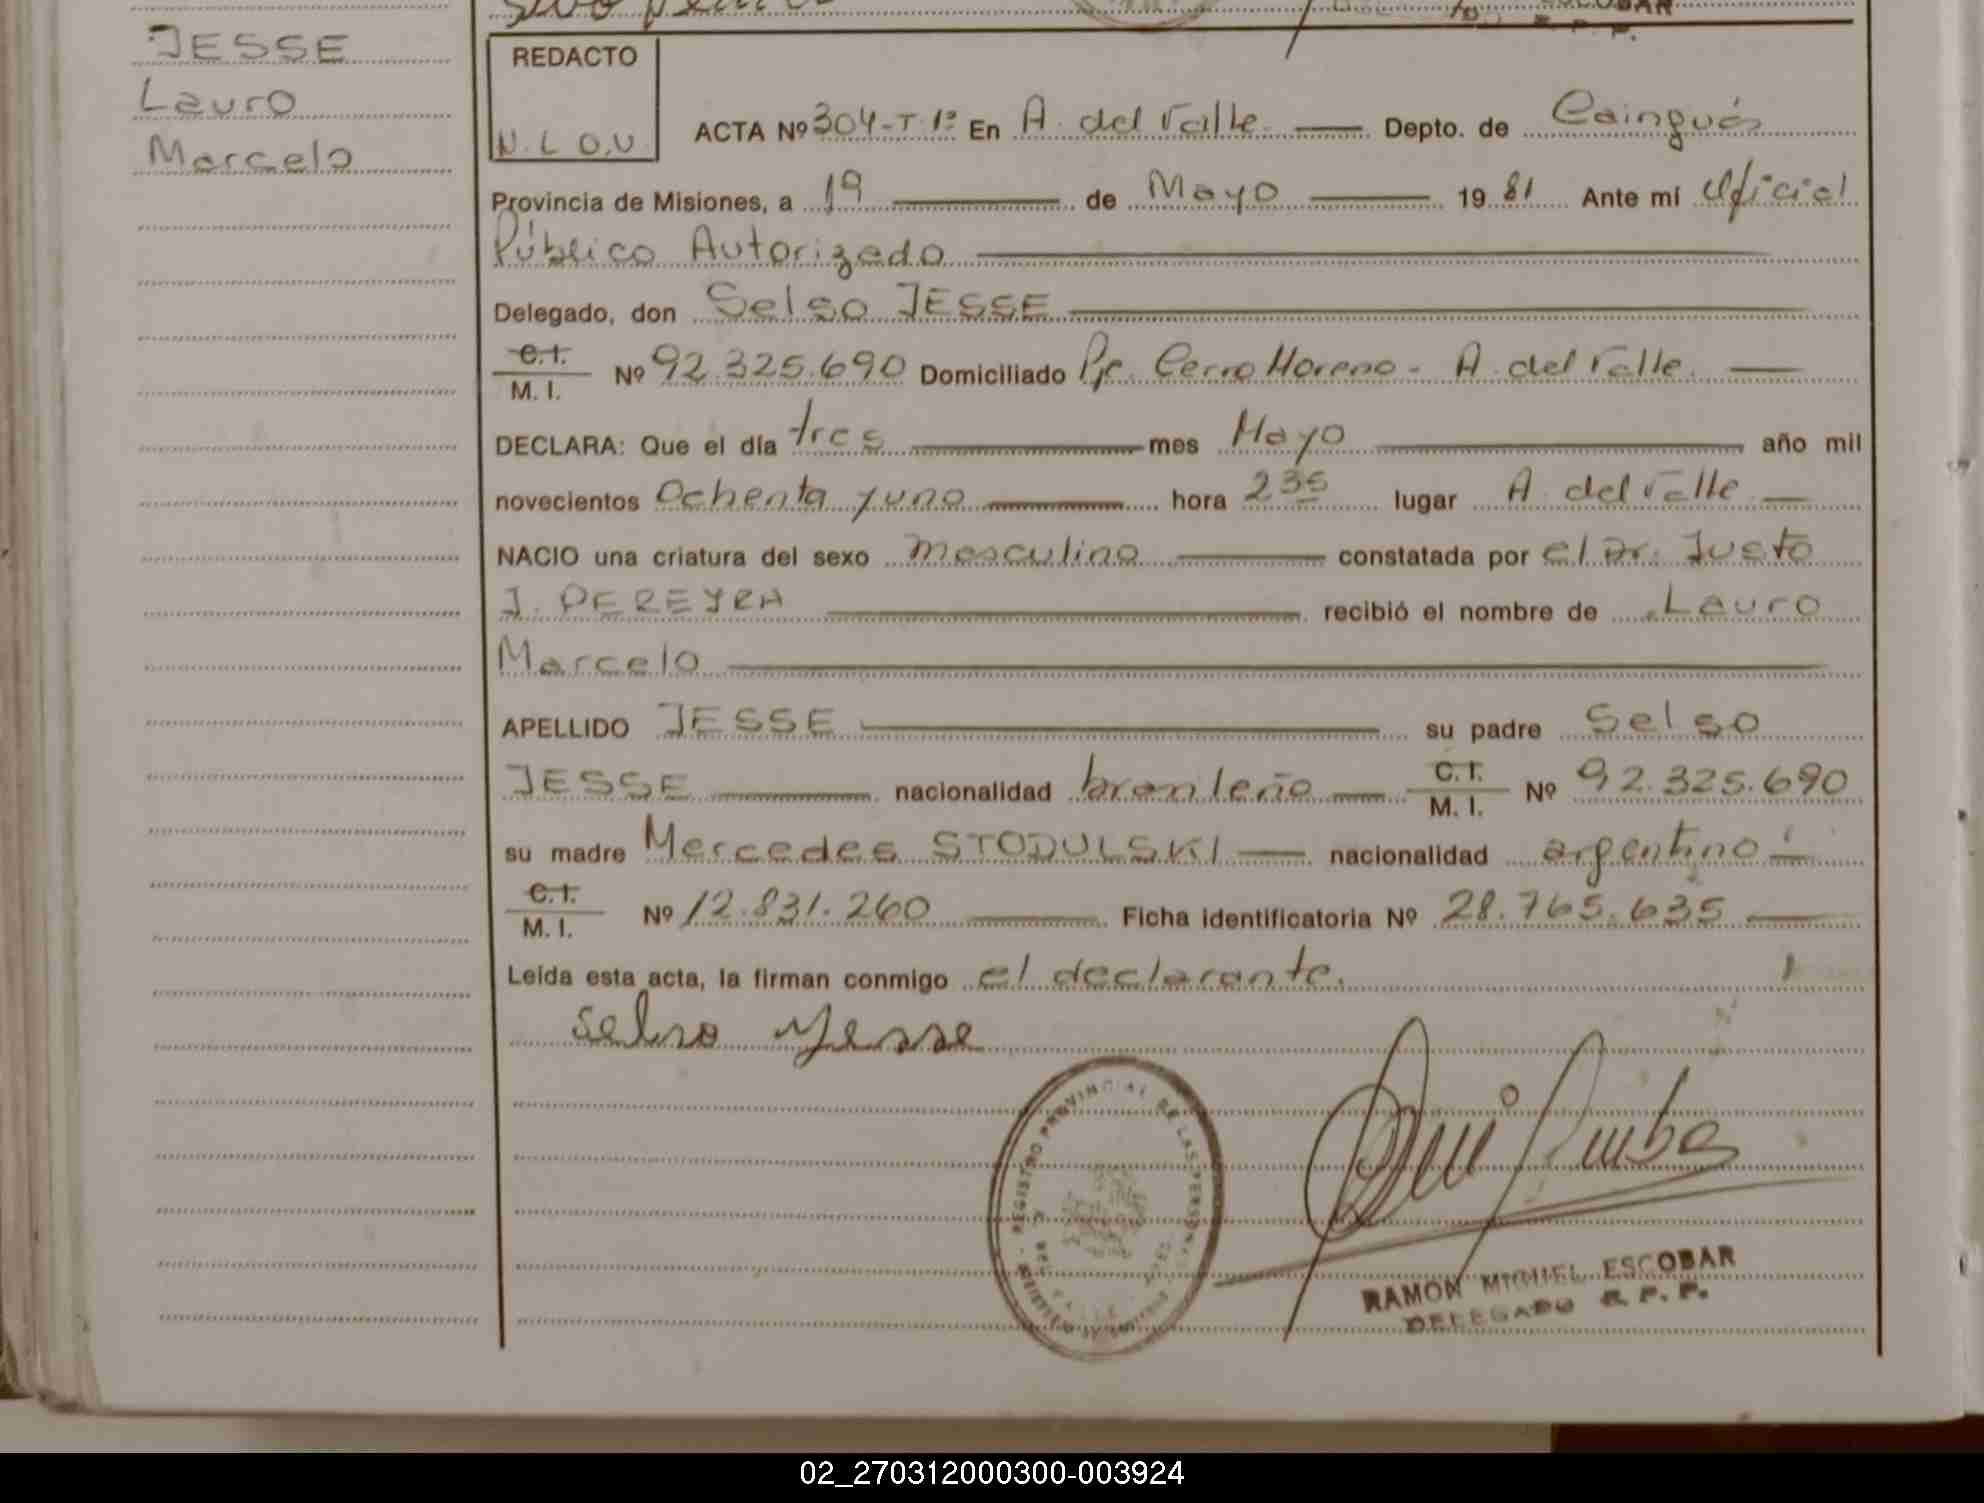 JESSE
Lauro
Marcelo
REDACTO
N.L.O.V.
ACTA Nº 304-T-1º En A. del Valle Depto. de Cainguás
Provincia de Misiones, a 19 de Mayo 19 81 Ante mi Oficial
Público Autorizado
Delegado, don Selso JESSE
C.I. / M.I. Nº 92.325.690 Domiciliado Pje. Cerro Moreno - A. del Valle
DECLARA: Que el día tres mes Mayo año mil
novecientos Ochenta y uno hora 235 lugar A. del Valle
NACIO una criatura del sexo masculino constatada por el Dr. Justo
J. PEREYRA recibió el nombre de Lauro
Marcelo
APELLIDO JESSE su padre Selso
JESSE nacionalidad brasileño C.I. / M.I. Nº 92.325.690
su madre Mercedes STODULSKI nacionalidad argentino
C.I. / M.I. Nº 12.831.260 Ficha identificatoria Nº 28.765.635
Leída esta acta, la firman conmigo el declarante.
Selso Yesse
REGISTRO PROVINCIAL DE LAS PERSONAS
RAMON MIGUEL ESCOBAR
DELEGADO R.P.P.
02_270312000300-003924